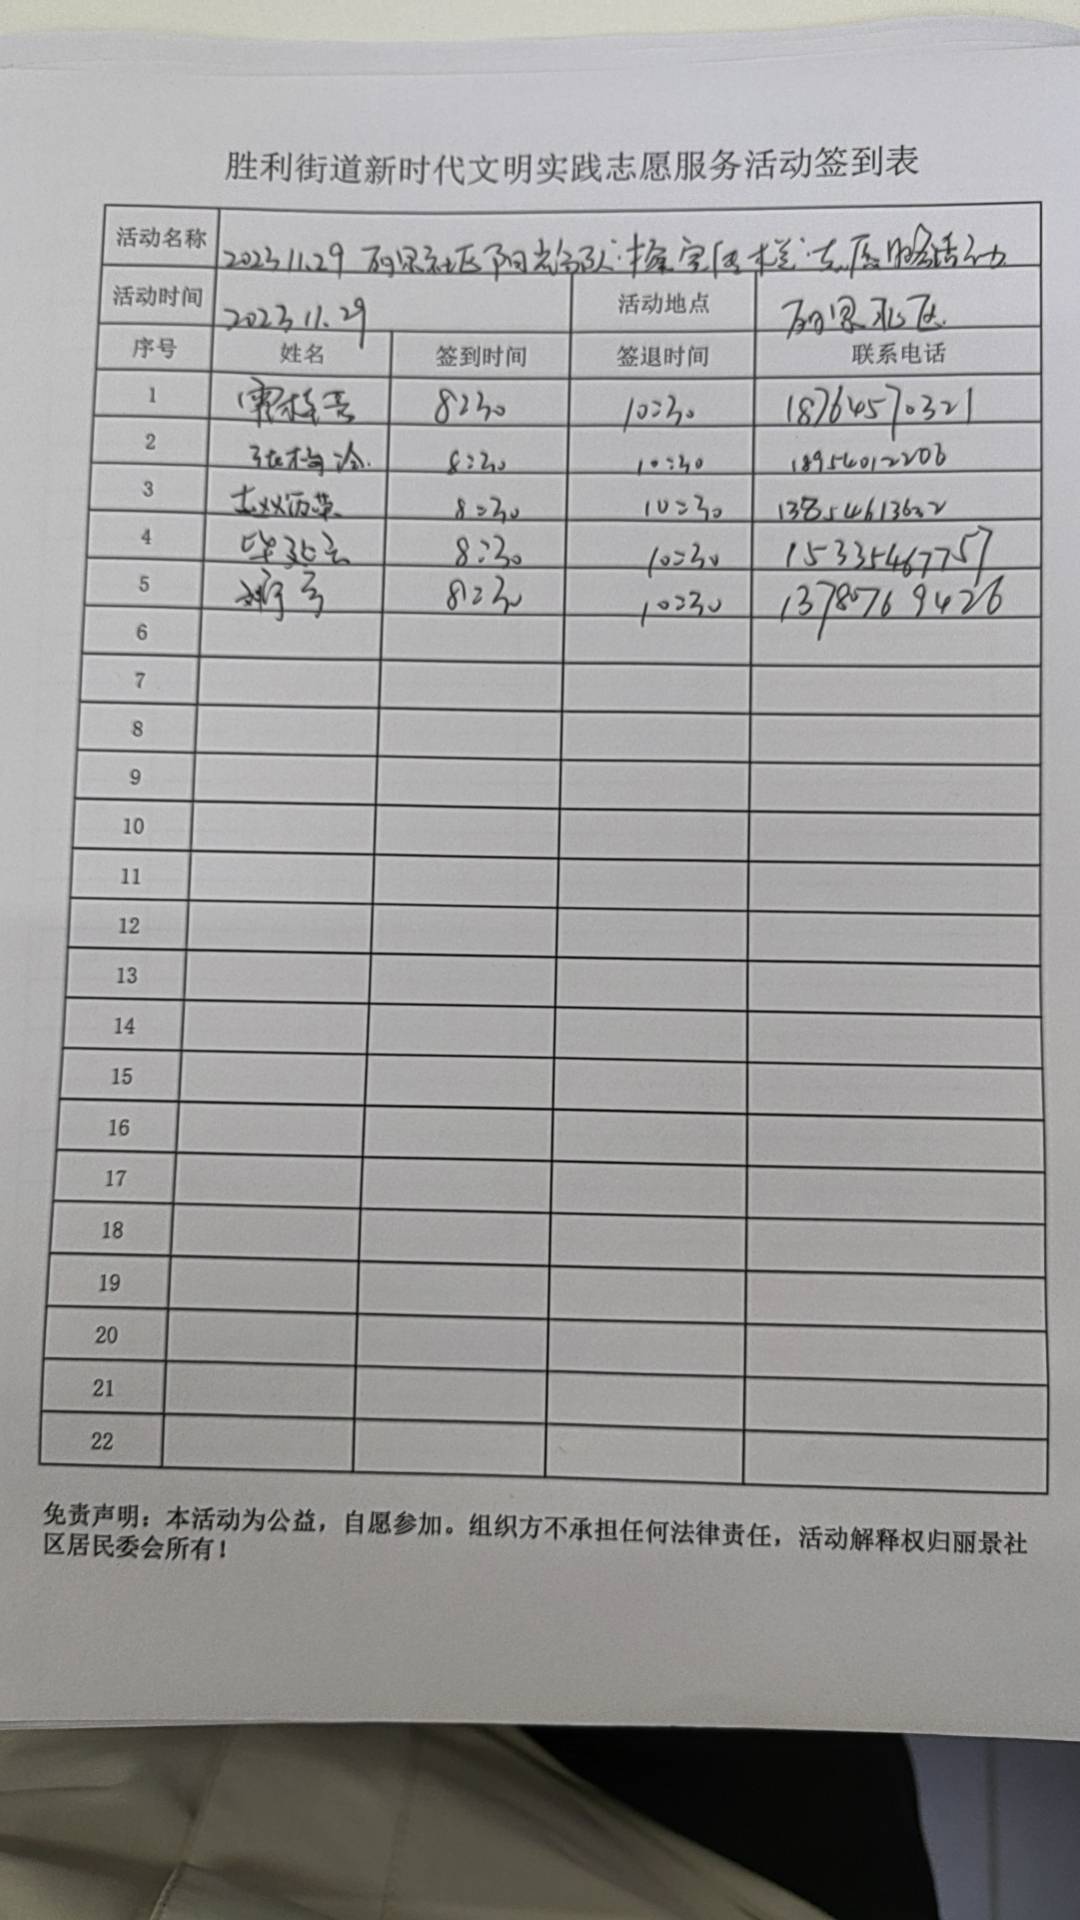 胜利街道新时代文明实践志愿服务活动签到表
活动名称 2023.11.29 丽景社区阳光 队擦宣传栏志愿服务活动
活动时间 2023.11.29 活动地点 丽景社区
序号 姓名 签到时间 签退时间 联系电话
1 8:30 10:30 18764570321
2 张梅 8:30 10:30 18954012206
3 赵丙荣 8:30 10:30
4 毕 8:30 10:30 15335467757
5 8:30 10:30 13780769426
6
7
8
9
10
11
12
13
14
15
16
17
18
19
20
21
22
免责声明：本活动为公益，自愿参加。组织方不承担任何法律责任，活动解释权归丽景社
区居民委会所有！